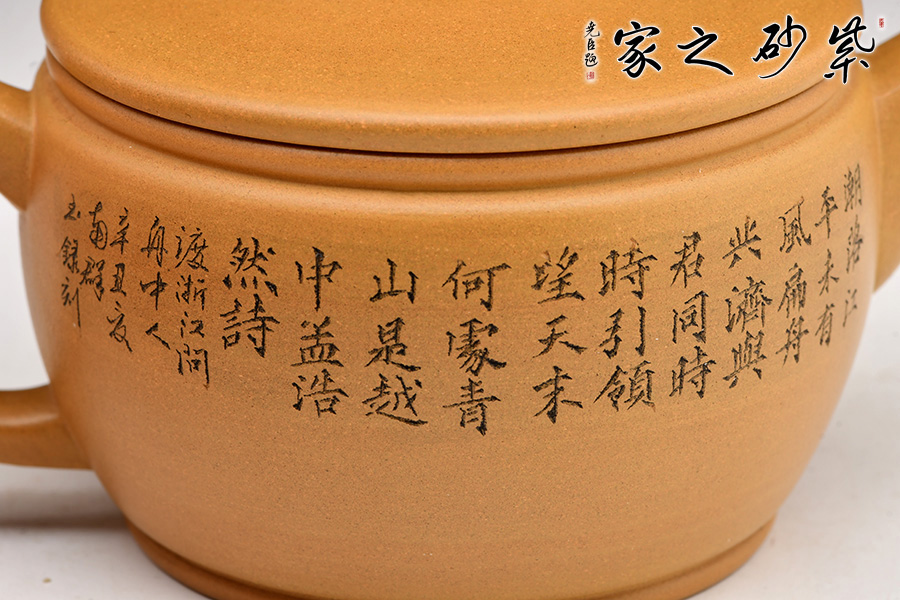 紫砂之家
堯臣題
潮落江
平未有
風扁舟
共濟與
君同時
時引領
望天末
何處青
山是越
中孟浩
然詩
渡浙江問
舟中人
辛丑夏
南群
錄刻